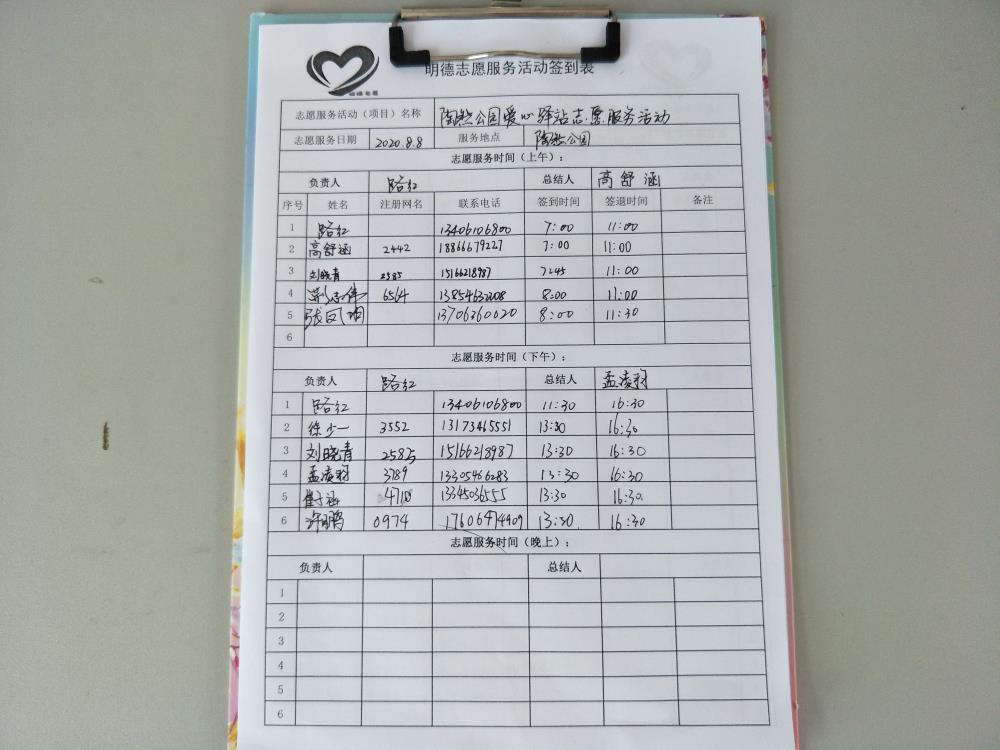 明德志愿服务活动签到表
志愿服务活动（项目）名称 陶然公园爱心驿站志愿服务活动
志愿服务日期 2020.8.8 服务地点 陶然公园
志愿服务时间（上午）：
负责人 路红 总结人 高舒涵
序号 姓名 注册网名 联系电话 签到时间 签退时间 备注
1 路红 13406106800 7:00 11:00
2 高舒涵 2442 18866679227 7:00 11:00
3 刘晓青 2585 15166218987 7:45 11:00
4 6564 13854632208 8:00 11:00
5 张凤 13706360020 8:00 11:30
6
志愿服务时间（下午）：
负责人 路红 总结人 孟凌羽
1 路红 13406106800 11:30 16:30
2 徐少一 3552 13173465551 13:30 16:30
3 刘晓青 2585 15166218987 13:30 16:30
4 孟凌羽 3789 13305466283 13:30 16:30
5 崔子涵 4710 13345036555 13:30 16:30
6 许鹏 0974 17606474909 13:30 16:30
志愿服务时间（晚上）：
负责人 总结人
1
2
3
4
5
6